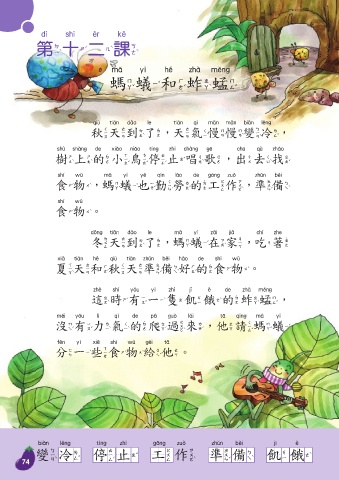 dì shí èr kè
第十二課
mǎ yǐ hé zhà měng
螞蟻和蚱蜢
qiū tiān dào le tiān qì màn màn biàn lěng
秋天到了，天氣慢慢變冷，
shù shàng de xiǎo niǎo tíng zhǐ chàng gē chū qù zhǎo
樹上的小鳥停止唱歌，出去找
shí wù mǎ yǐ yě qín láo de gōng zuò zhǔn bèi
食物，螞蟻也勤勞的工作，準備
shí wù
食物。
dōng tiān dào le mǎ yǐ zài jiā chī zhe
冬天到了，螞蟻在家，吃著
xià tiān hé qiū tiān zhǔn bèi hǎo de shí wù
夏天和秋天準備好的食物。
zhè shí yǒu yì zhī jī è de zhà měng
這時有一隻飢餓的蚱蜢，
méi yǒu lì qì de pá guò lái tā qǐng mǎ yǐ
沒有力氣的爬過來，他請螞蟻
fēn yì xiē shí wù gěi tā
分一些食物給他。
biàn lěng tíng zhǐ gōng zuò zhǔn bèi jī è
變冷 停止 工作 準備 飢餓
74